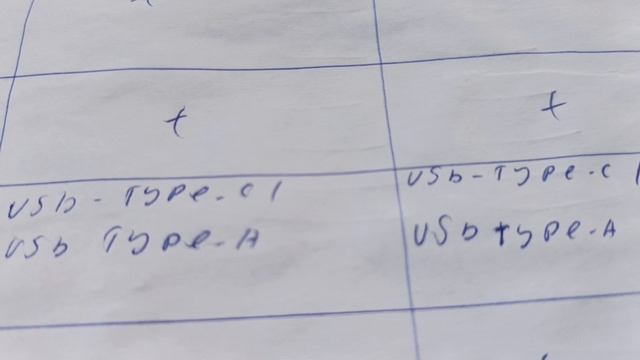 + +
USb - TYPe-C / USb - TYPe-C /
USb TYPe-A USb type-A